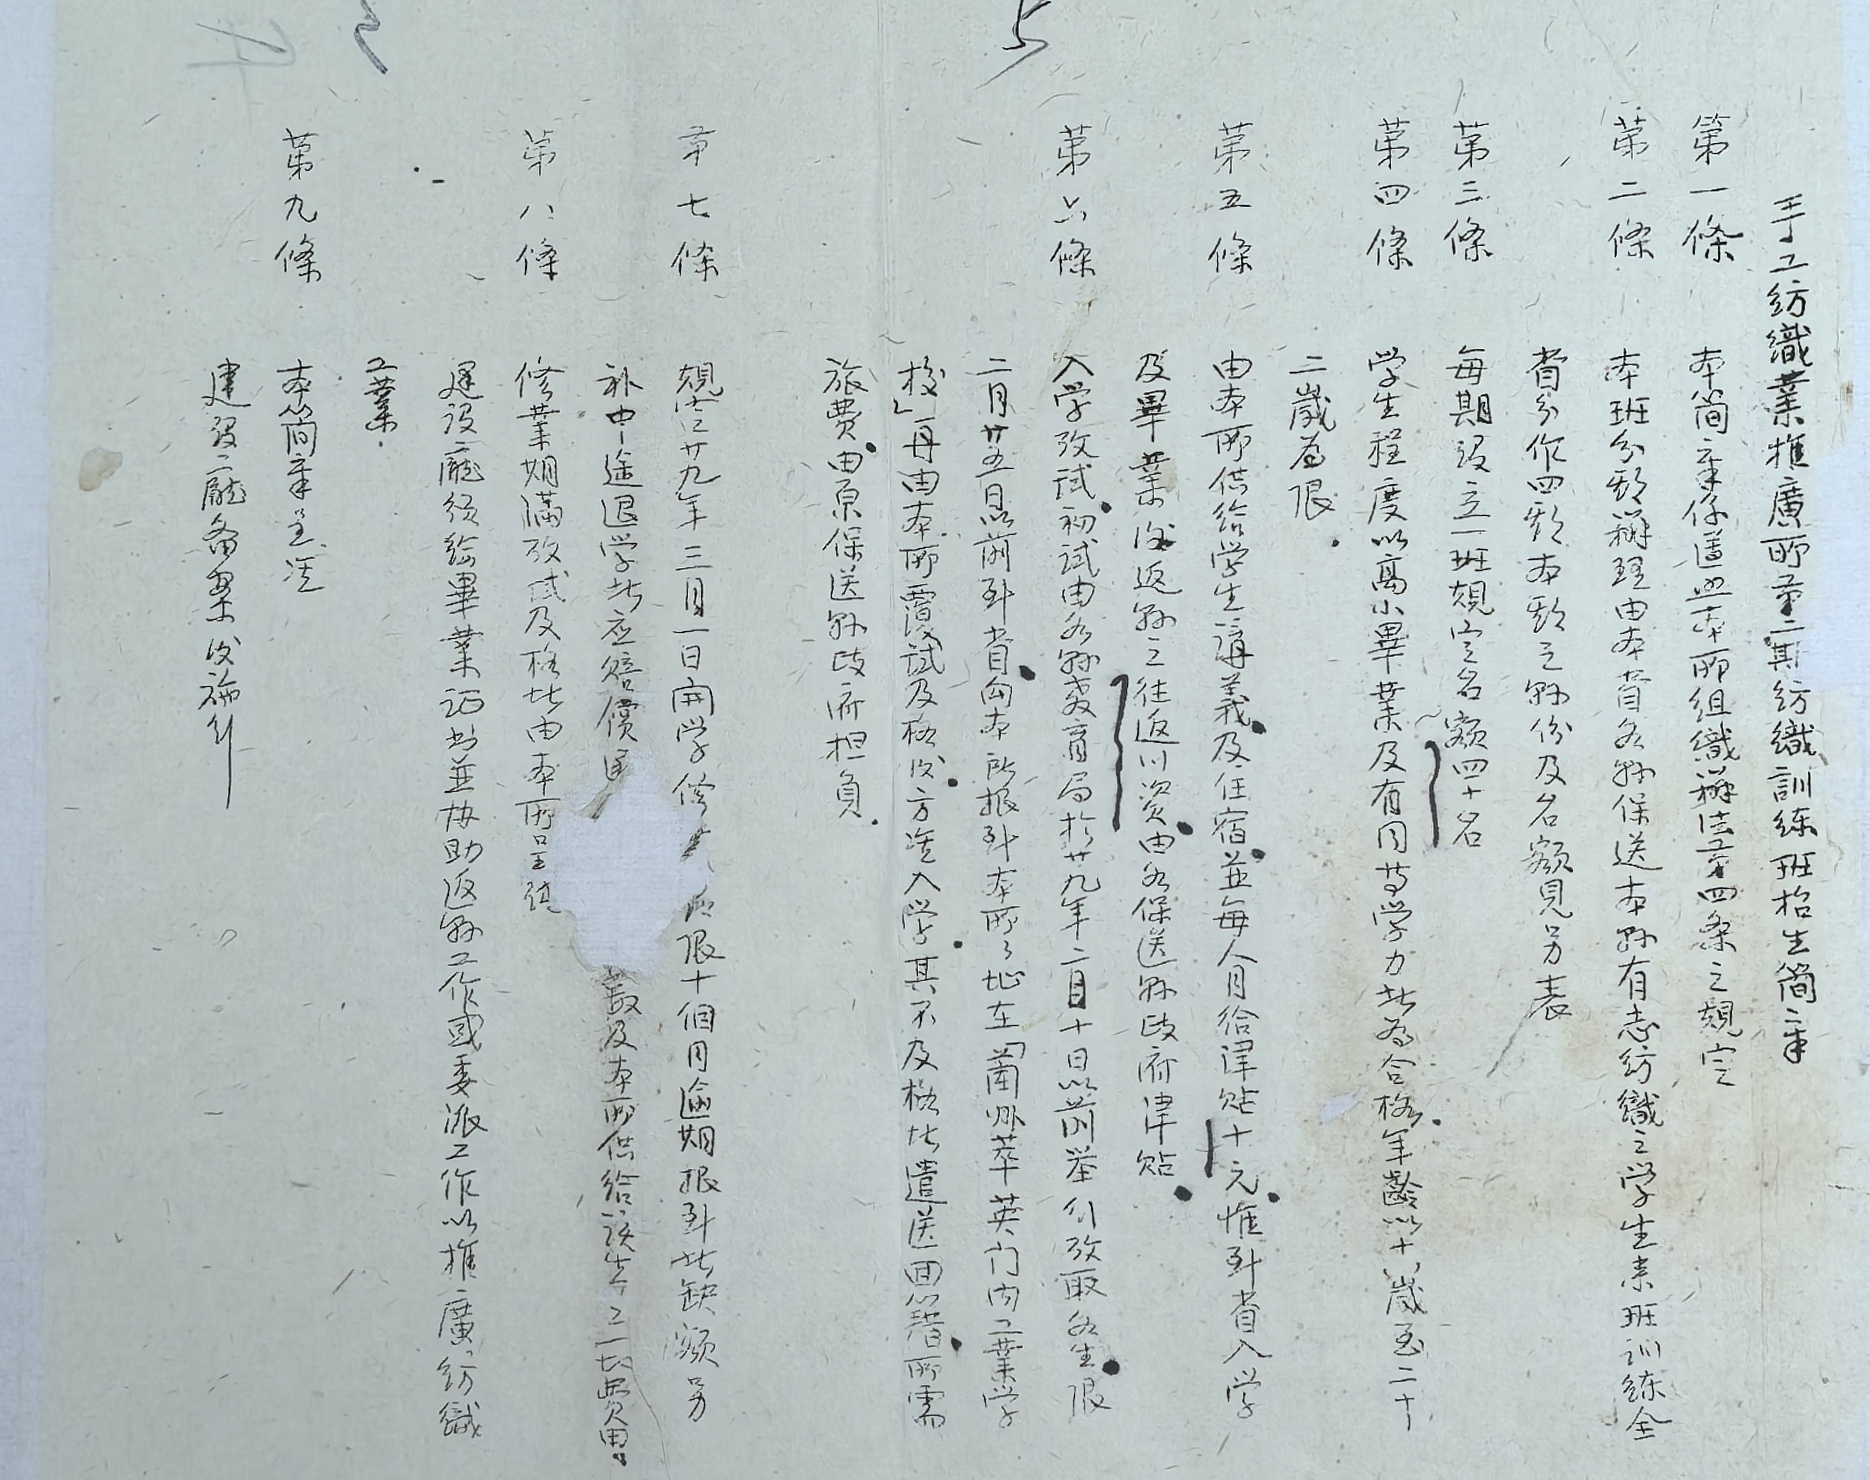 5
手工紡織業推廣所第二期紡織訓練班招生簡章
第一條 本簡章係遵照本所組織辦法第四条之規定
第二條 本班分期辦理由本省各縣保送本縣有志紡織之学生來班训练全
省分作四期本期之縣份及名额見另表
第三條 每期设立一班規定名额四十名
第四條 学生程度以高小畢業及有同等学力者為合格年齡以十八歲至二十
二歲為限
第五條 由本所供给学生講義及住宿並每人月给津贴十元惟到省入学
及畢業後返縣之往返川资由各保送縣政府津贴
第六條 入学攷試初試由各縣教育局於廿九年二月十日以前举行攷取各生限
二月廿五日以前到省向本所報到本所所址在「蘭州萃英门内工業学
校」再由本所覆試及格後方准入学其不及格者遣送回籍所需
旅费由原保送縣政府担負
第七條 規定廿九年三月一日開学修 限十個月逾期報到者缺额另
补中途退学者应赔償 数及本所供给该生之一切费用
第八條 修業期滿攷试及格者由本所呈請
建设廳颁给畢業证书並协助返縣工作或委派工作以推廣紡織
工業
第九條 本简章呈准
建设廳备案後施行